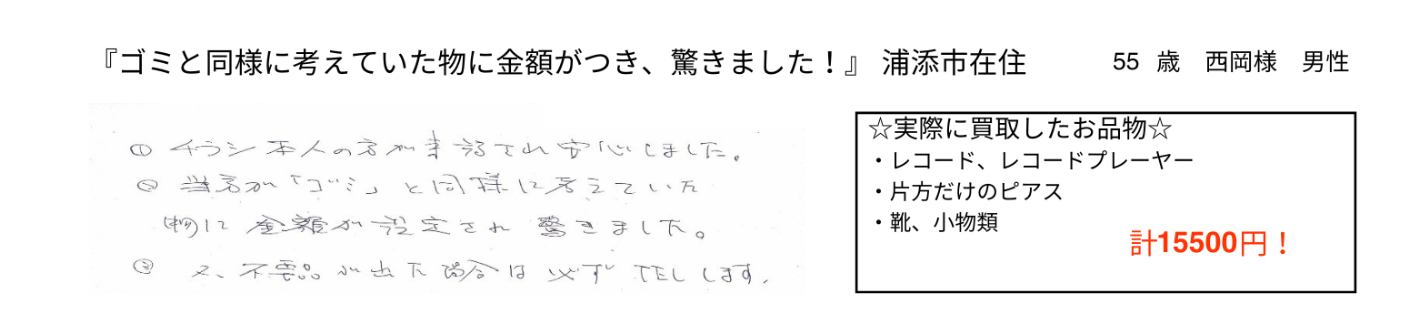 『ゴミと同様に考えていた物に金額がつき、驚きました！』 浦添市在住 55 歳 西岡様 男性
① チラシ本人の方が来訪され安心しました。
② 当方が「ゴミ」と同様に考えていた
(物)に金額が設定され驚きました。
③ 又、不要品が出た場合は必ずTELします.
☆実際に買取したお品物☆
・レコード、レコードプレーヤー
・片方だけのピアス
・靴、小物類
計15500円！